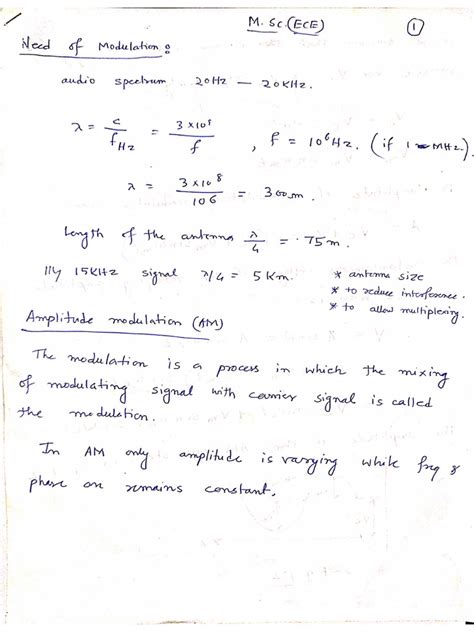 M. Sc. (ECE)
1
Need of Modulation :
audio spectrum 20Hz — 20KHz.
λ = c / f Hz = 3 × 10⁸ / f , f = 10⁶ Hz. (if 1 MHz.)
λ = 3 × 10⁸ / 10⁶ = 300m.
Length of the antenna λ/4 = 75m.
111y 15KHz signal λ/4 = 5 Km.
* antenna size
* to reduce interference.
* to allow multiplexing.
Amplitude modulation (AM)
The modulation is a process in which the mixing
of modulating signal with carrier signal is called
the modulation.
In AM only amplitude is varying while frq &
phase on remains constant.